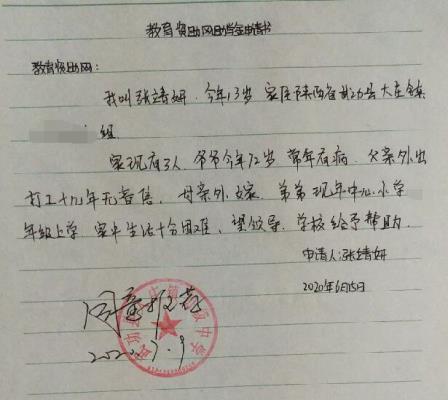 教育资助网助学金申请书
教育资助网：
我叫张靖妍，今年13岁 家住陕西省武功县大庄镇
组
家现有3人，爷爷今年72岁 常年有病，父亲外出
打工十几年无音信，母亲外嫁，弟弟现年中心小学
年级上学，家中生活十分困难，望领导、学校给予帮助
申请人：张靖妍
2020年6月15日
同意推荐
2020.7.9